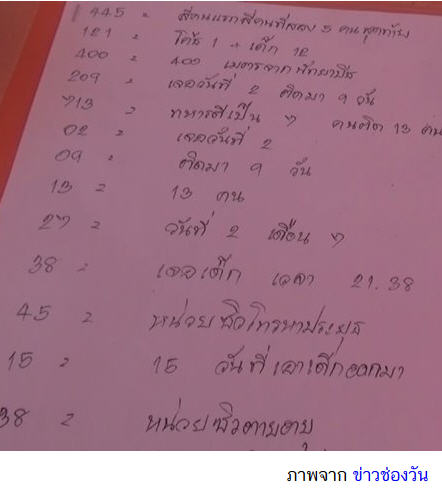 445 = สี่คนแรกสี่คนที่สอง 5 คนสุดท้าย
121 = โค้ช 1 + เด็ก 12
400 = 400 เมตรจากพัทยาบีช
209 = เจอวันที่ 2 ติดมา 9 วัน
713 = ทหารตีเป็น 7 คนติด 13 คน
02 = เจอวันที่ 2
09 = ติดมา 9 วัน
13 = 13 คน
27 = วันที่ 2 เดือน 7
38 = เจอเด็ก เวลา 21.38
45 = หน่วยซีวโทรหาประยุธ
15 = 15 วันที่เอาเด็กออกมา
38 = หน่วยซิวตายอายุ
ภาพจาก ข่าวช่องวัน